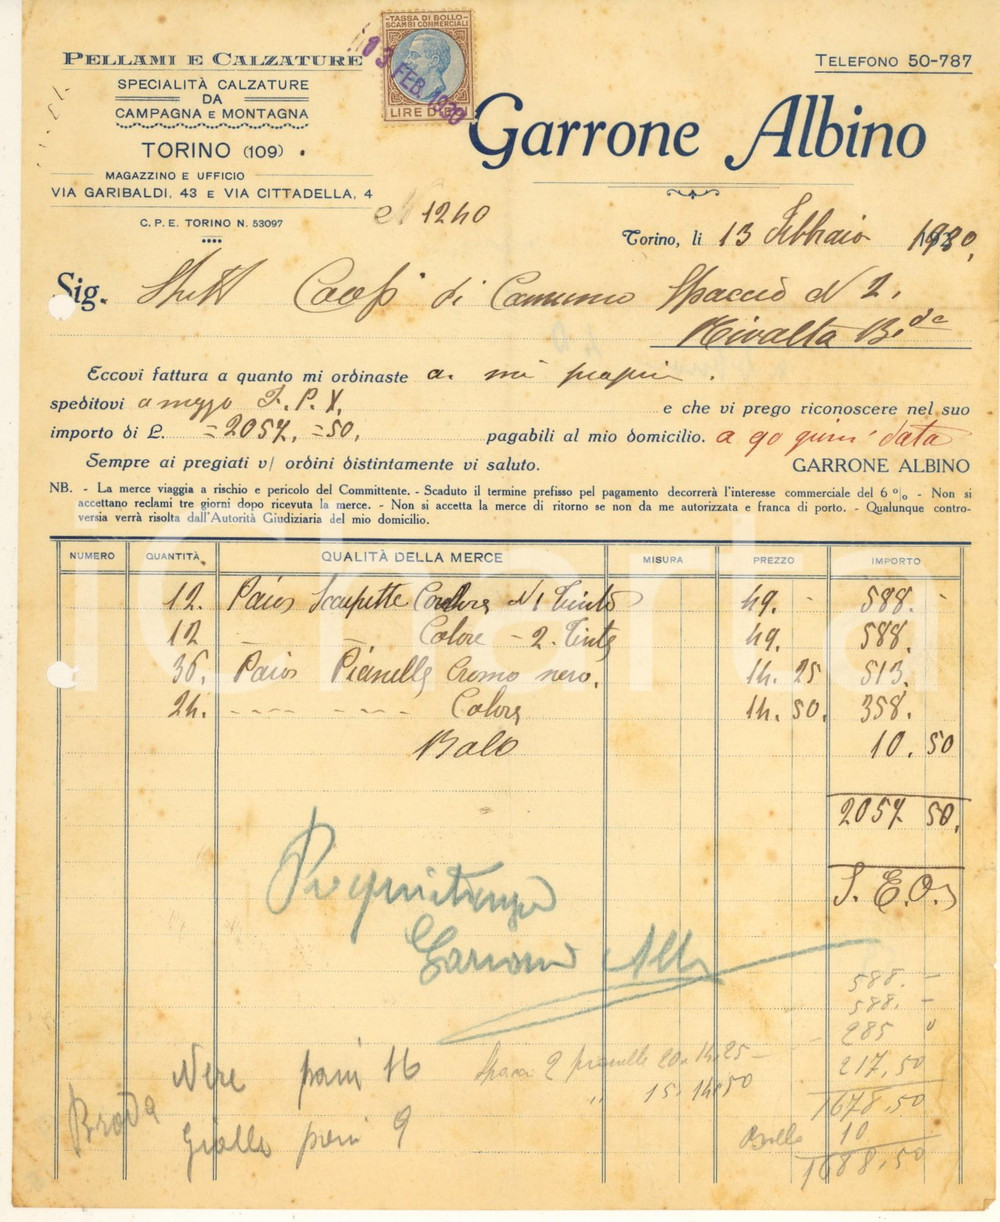 TASSA DI BOLLO
SCAMBI COMMERCIALI
LIRE DUE
13 FEB. 1930
PELLAMI E CALZATURE
SPECIALITÀ CALZATURE
DA
CAMPAGNA E MONTAGNA
TORINO (109)
MAGAZZINO E UFFICIO
VIA GARIBALDI, 43 E VIA CITTADELLA, 4
C. P. E. TORINO N. 53097
TELEFONO 50-787
Garrone Albino
N 1240
Torino, li 13 Febbraio 1930,
Sig. Coop di Consumo Spaccio N 2.
Rivalta B.da
Eccovi fattura a quanto mi ordinaste a. mi
speditovi a mezzo e che vi prego riconoscere nel suo
importo di £. =2057,=50, pagabili al mio domicilio. a 90 giorni data
Sempre ai pregiati v/ ordini distintamente vi saluto. GARRONE ALBINO
NB. - La merce viaggia a rischio e pericolo del Committente. - Scaduto il termine prefisso pel pagamento decorrerà l'interesse commerciale del 6 % - Non si
accettano reclami tre giorni dopo ricevuta la merce. - Non si accetta la merce di ritorno se non da me autorizzata e franca di porto. - Qualunque contro-
versia verrà risolta dall'Autorità Giudiziaria del mio domicilio.
NUMERO QUANTITÀ QUALITÀ DELLA MERCE MISURA PREZZO IMPORTO
12. Paios Scarpette Colore N 1 Tinta 49. - 588. -
12 — — Colore - 2. Tinte 49. 588.
36. Paios Pianelle Cromo nero. 14. 25 513.
24. ---- ---- Colore 14. 50. 358.
Bolo 10. 50
2057 50.
S. E. O.
Per quietanza
Garrone Alb
588. -
588. -
285 0
Spaccio 2 pianelle 20 . 14.25 - 217,50
" 15. 14.50 1678.50
Nere paia 16
Bollo 10
Giallo paia 9 1688.50
iCharta